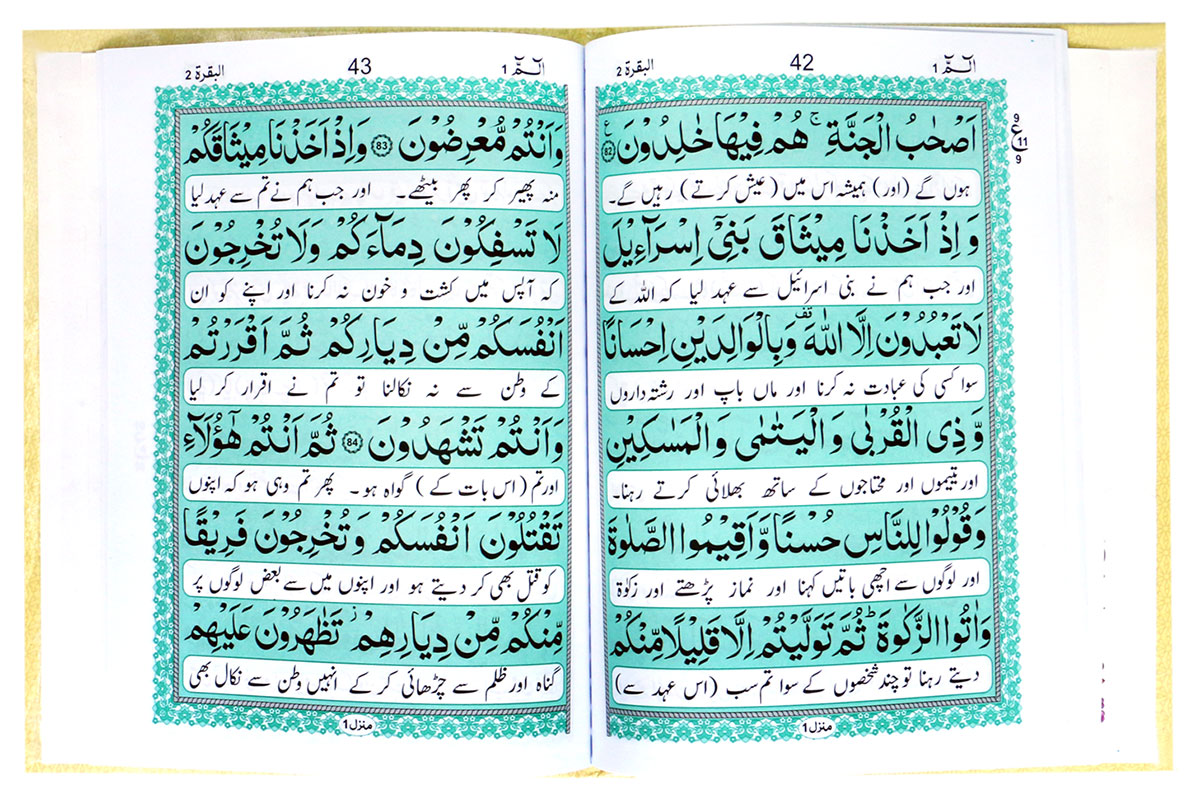 الٓمّٓ 1
42
البقرة 2
اَصْحٰبُ الْجَنَّةِ ۚ هُمْ فِيْهَا خٰلِدُوْنَ 82 ع
ہوں گے (اور) ہمیشہ اس میں (عیش کرتے) رہیں گے۔
وَاِذْ اَخَذْنَا مِيْثَاقَ بَنِيْٓ اِسْرَآءِيْلَ
اور جب ہم نے بنی اسرائیل سے عہد لیا کہ اللہ کے
لَا تَعْبُدُوْنَ اِلَّا اللّٰهَ قف وَبِالْوَالِدَيْنِ اِحْسَانًا
سوا کسی کی عبادت نہ کرنا اور ماں باپ اور رشتہ داروں
وَّذِي الْقُرْبٰى وَالْيَتٰمٰى وَالْمَسٰكِيْنِ
اور یتیموں اور محتاجوں کے ساتھ بھلائی کرتے رہنا۔
وَقُوْلُوْا لِلنَّاسِ حُسْنًا وَّاَقِيْمُوا الصَّلٰوةَ
اور لوگوں سے اچھی باتیں کہنا اور نماز پڑھتے اور زکوٰۃ
وَاٰتُوا الزَّكٰوةَ ؕ ثُمَّ تَوَلَّيْتُمْ اِلَّا قَلِيْلًا مِّنْكُمْ
دیتے رہنا تو چند شخصوں کے سوا تم سب (اس عہد سے)
منزل 1
9
ع 11
9
الٓمّٓ 1
43
البقرة 2
وَاَنْتُمْ مُّعْرِضُوْنَ 83 وَاِذْ اَخَذْنَا مِيْثَاقَكُمْ
منہ پھیر کر پھر بیٹھے۔ اور جب ہم نے تم سے عہد لیا
لَا تَسْفِكُوْنَ دِمَآءَكُمْ وَلَا تُخْرِجُوْنَ
کہ آپس میں کشت و خون نہ کرنا اور اپنے کو ان
اَنْفُسَكُمْ مِّنْ دِيَارِكُمْ ثُمَّ اَقْرَرْتُمْ
کے وطن سے نہ نکالنا تو تم نے اقرار کر لیا
وَاَنْتُمْ تَشْهَدُوْنَ 84 ثُمَّ اَنْتُمْ هٰٓؤُلَآءِ
اور تم (اس بات کے) گواہ ہو۔ پھر تم وہی ہو کہ اپنوں
تَقْتُلُوْنَ اَنْفُسَكُمْ وَتُخْرِجُوْنَ فَرِيْقًا
کو قتل بھی کر دیتے ہو اور اپنوں میں سے بعض لوگوں پر
مِّنْكُمْ مِّنْ دِيَارِهِمْ ز تَظٰهَرُوْنَ عَلَيْهِمْ
گناہ اور ظلم سے چڑھائی کر کے انہیں وطن سے نکال بھی
منزل 1